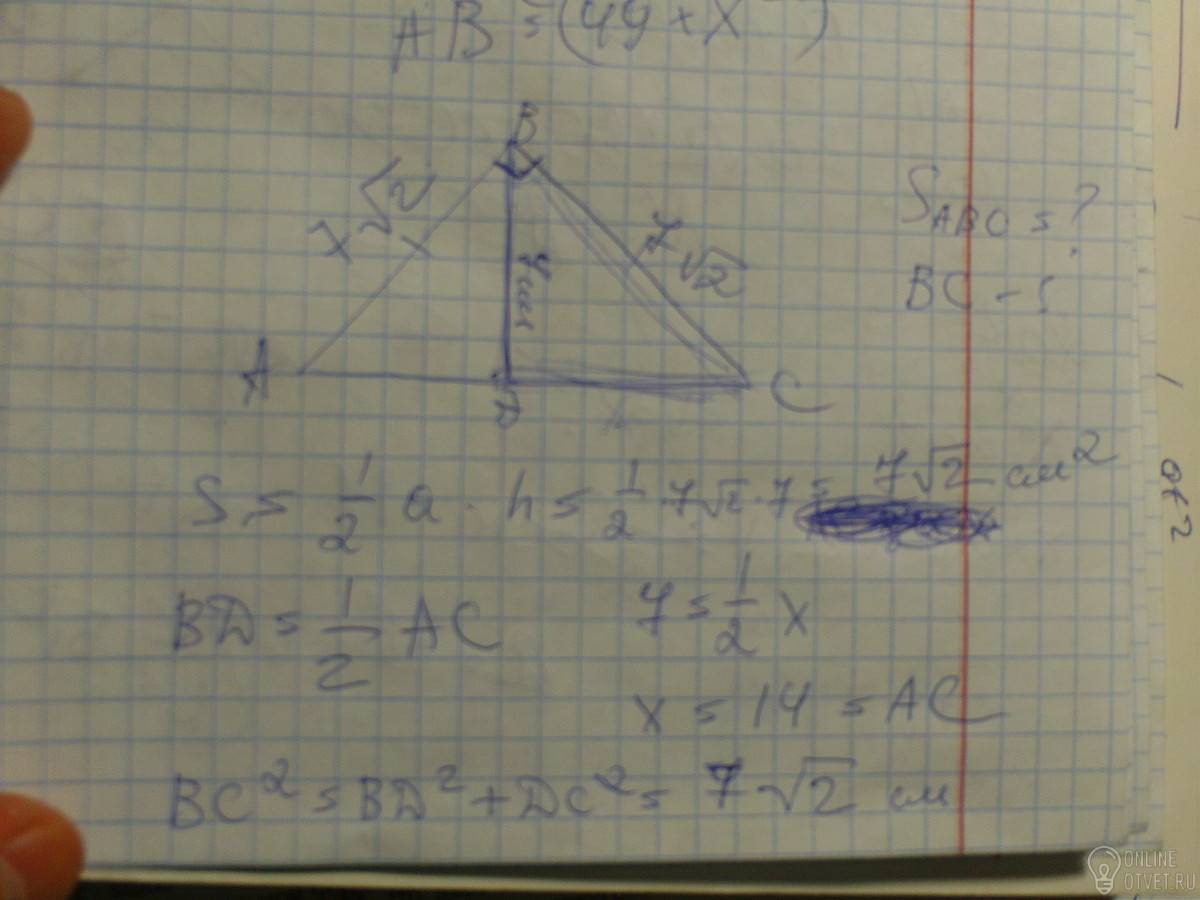 AB = (49 + x
B
√2
7√2
S ABC = ?
7 см
BC - ?
A
D
C
S = 1/2 a · h = 1/2 · 7√2 · 7 = 7√2 см²
BD = 1/2 AC
7 = 1/2 x
x = 14 = AC
BC² = BD² + DC² = 7√2 см
ONLINE
OTVET.RU